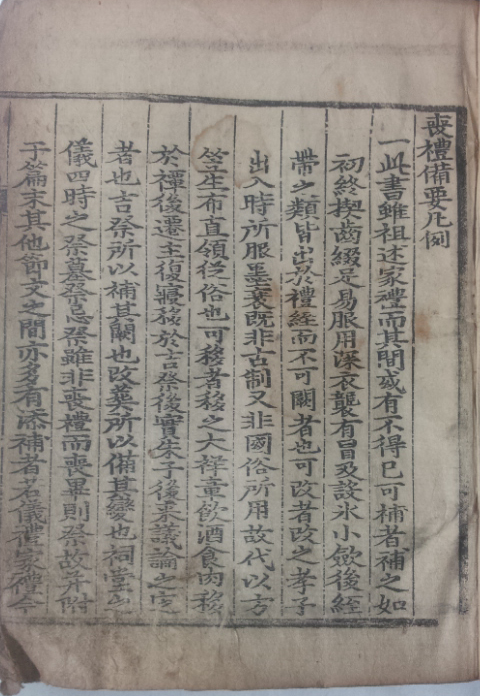 喪禮備要凡例
一此書雖祖述家禮而其間或有不得已可補者補之如
初終楔齒綴足易服用深衣襲有冒及設氷小斂後絰
帶之類皆出於禮經而不可闕者也可改者改之孝子
出入時所服墨衰旣非古制又非國俗所用故代以方
笠生布直領從俗也可移者移之大祥章飮酒食肉移
於禫後遷主復寢移於吉祭後實朱子後來議論之定
者也吉祭所以補其闕也改葬所以備其變也祠堂
儀四時之祭墓祭忌祭雖非喪禮而喪畢則祭故幷附
于篇末其他節文之間亦多有添補者名儀禮家禮今